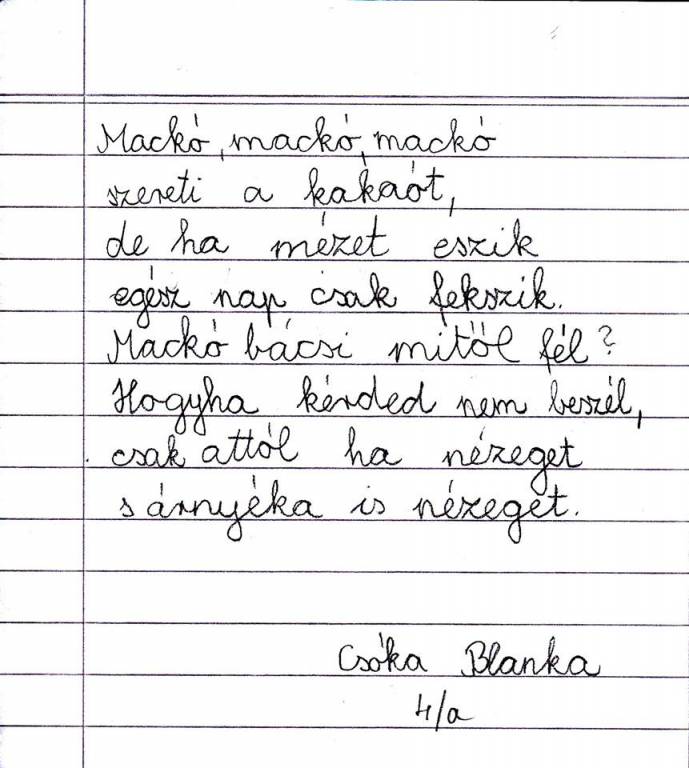 Mackó, mackó, mackó
szereti a kakaót,
de ha mézet eszik
egész nap csak fekszik.
Mackó bácsi mitől fél?
Hogyha kérded nem beszél,
csak attól ha nézeget
sárnyéka is nézeget.
Csóka Blanka
4/a